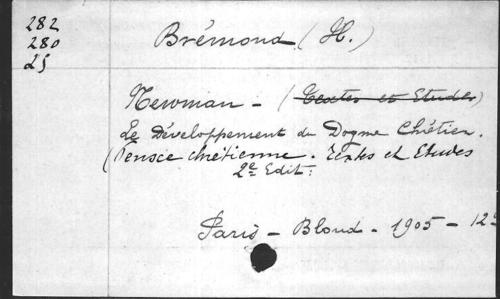 282
280
25
Brémond (H.)
Newman - (Textes et Etudes)
Le Développement du Dogme Chrétien.
(Pensée chrétienne. Textes et Etudes
2e Edit:
Paris - Bloud - 1905 - 12°